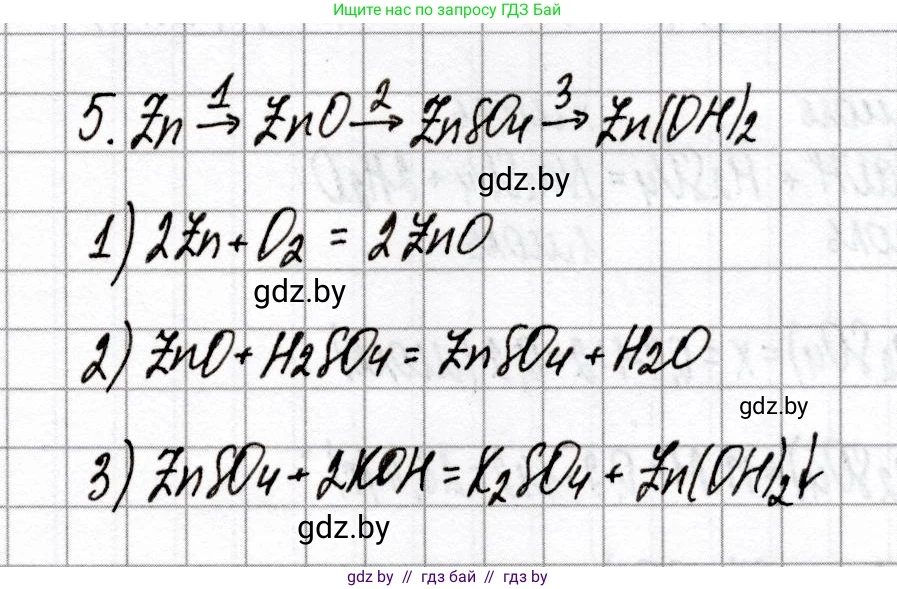 Ищите нас по запросу ГДЗ Бай
5. Zn 1→ ZnO 2→ ZnSO4 3→ Zn(OH)2
gdz.by
1) 2Zn + O2 = 2ZnO
gdz.by
2) ZnO + H2SO4 = ZnSO4 + H2O
gdz.by
3) ZnSO4 + 2KOH = K2SO4 + Zn(OH)2↓
gdz.by
gdz by // гдз бай // гдз by